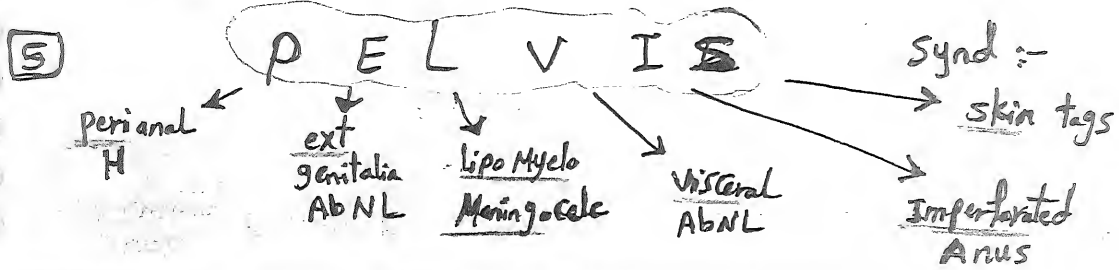 5
P E L V I S
Synd :-
perianal
H
ext
genitalia
AbNL
Lipo Myelo
Meningocele
visceral
AbNL
Imperforated
Anus
skin tags